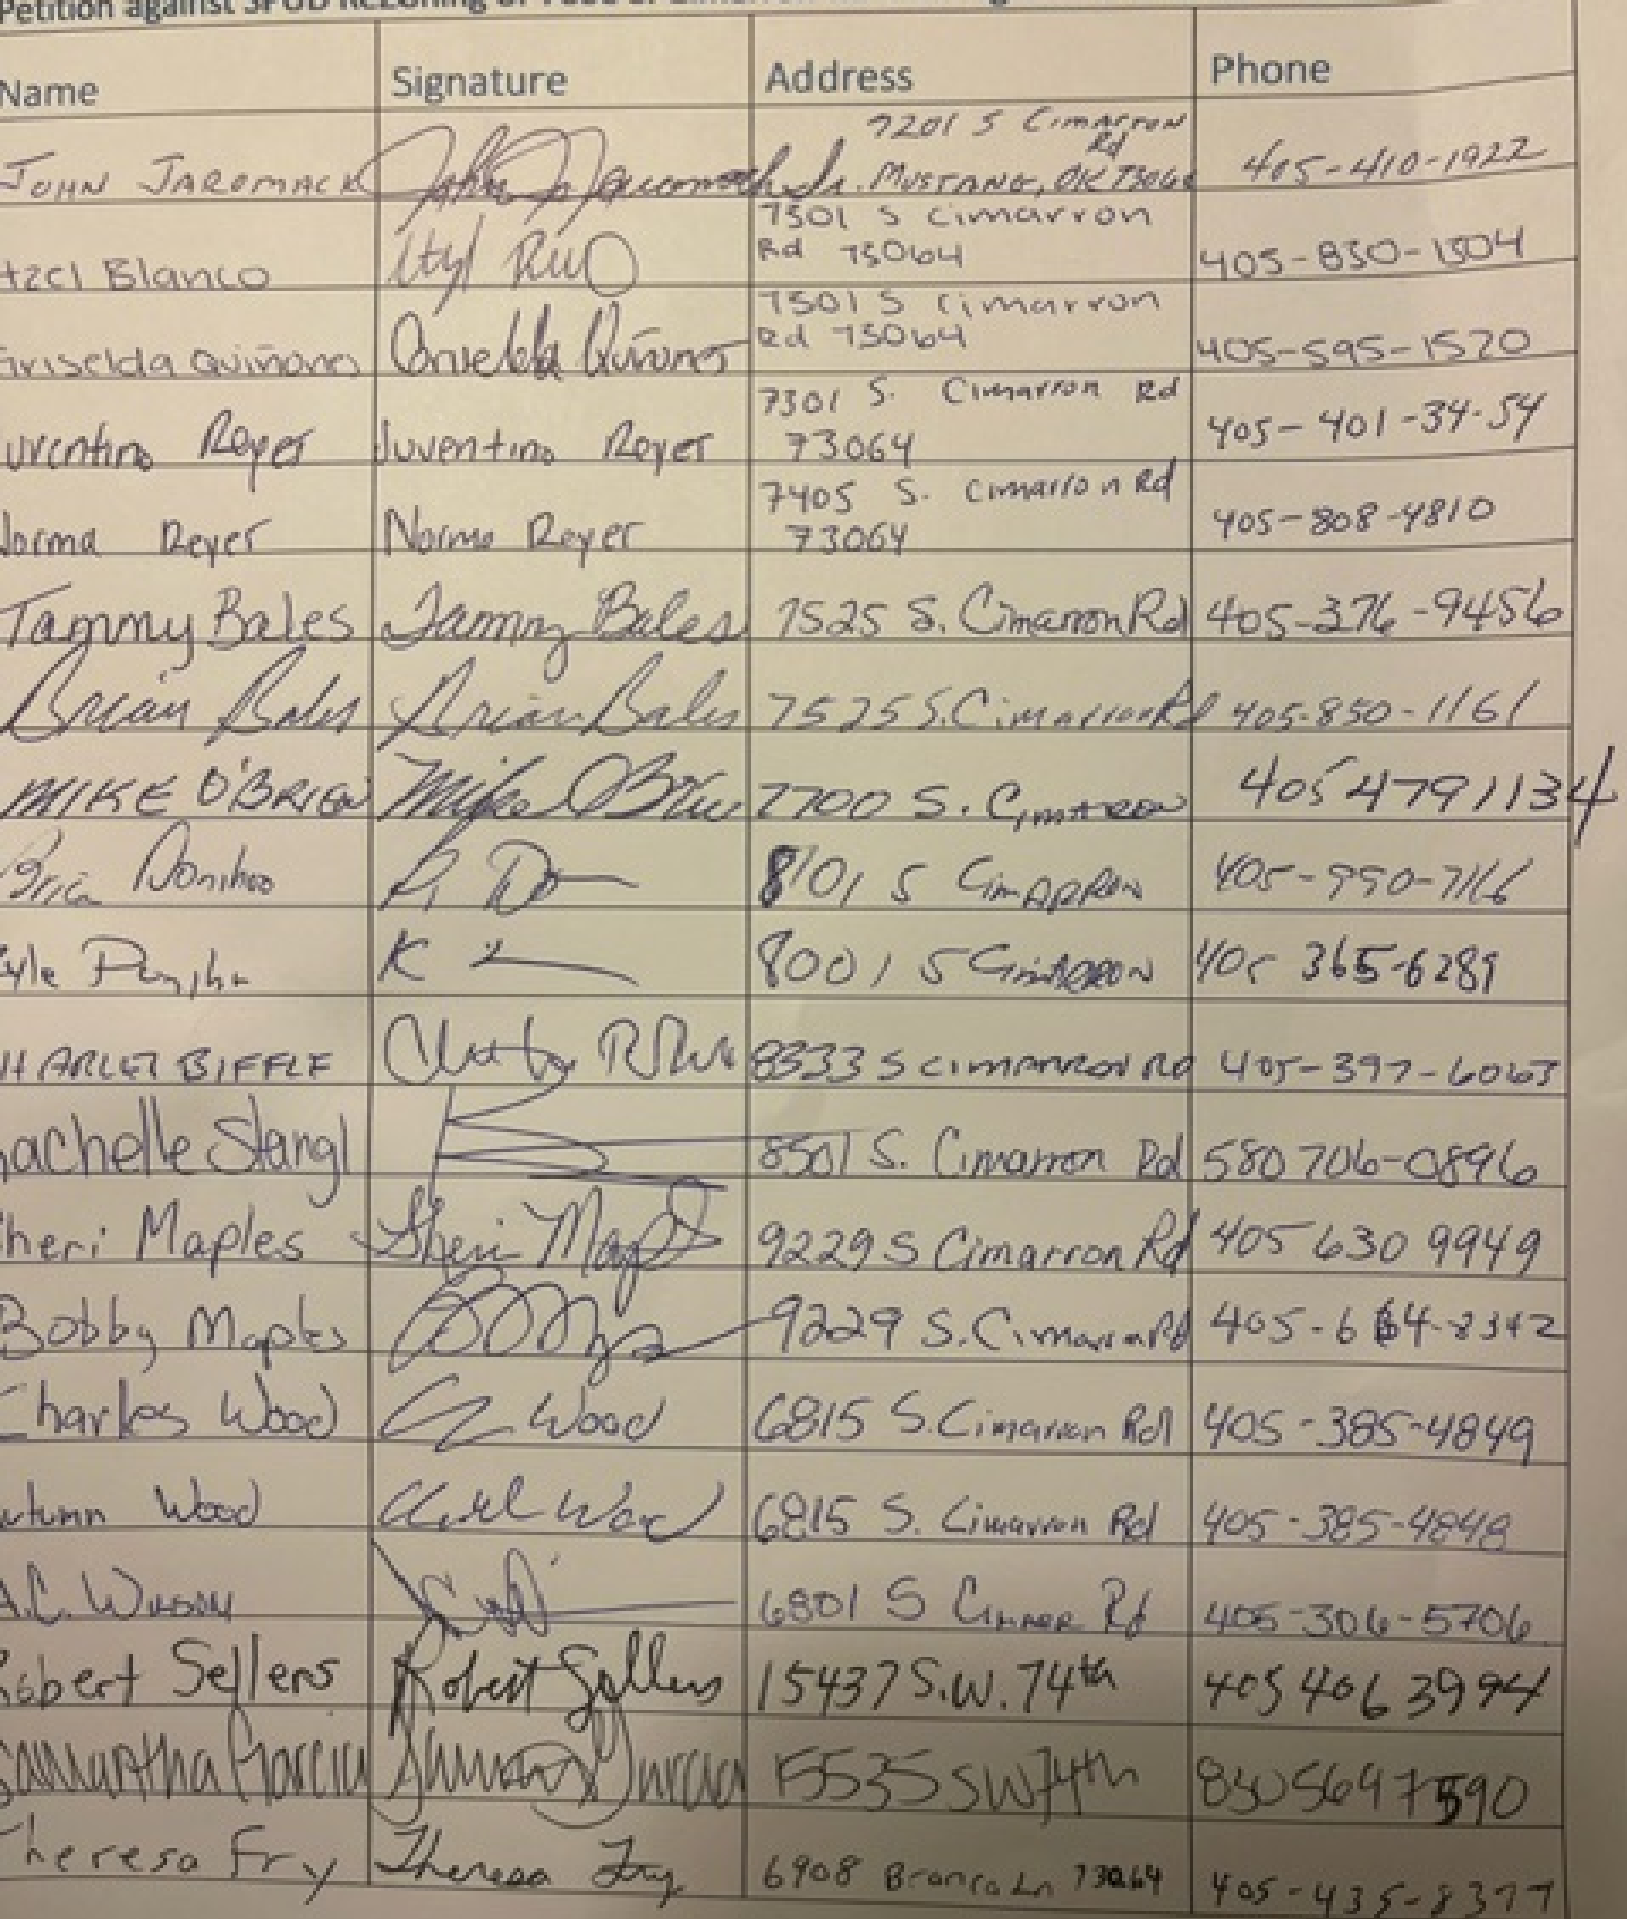 Petition against SPUD Rezoning of
Name Signature Address Phone
JOHN JAROMACK 7201 S Cimarron Rd MUSTANG, OK 73064 405-410-1922
tzel Blanco 7301 S Cimarron Rd 73064 405-830-1304
riselda Quiñones 7301 S Cimarron Rd 73064 405-595-1520
uventino Reyer Juventino Reyer 7301 S. Cimarron Rd 73064 405-401-34-54
Norma Reyer Norma Reyer 7405 S. Cimarron Rd 73064 405-808-4810
Tammy Bales Tammy Bales 7525 S. Cimarron Rd 405-376-9456
Brian Bales Brian Bales 7525 S. Cimarron Rd 405-850-1161
MIKE O'BRIEN Mike O'Brien 7700 S. Cimarron 405 479 1134
8101 S Cimarron 405-990-7166
yle 8001 S Cimarron 405 365-6289
HARLEY BIFFLE 8333 S CIMARRON Rd 405-397-6063
achelle Stangl 8501 S. Cimarron Rd 580 706-0896
heri Maples Sheri Maples 9229 S Cimarron Rd 405 630 9949
Bobby Maples 9229 S. Cimarron Rd
Charles Wood Wood 6815 S. Cimarron Rd 405-385-4849
utumn Wood Wood 6815 S. Cimarron Rd 405-385-4848
A.C. 6801 S Rd 405-306-5706
Robert Sellers Robert Sellers 15437 S.W. 74th 405 406 3994
Samantha Garcia Garcia 15535 SW 74th
Theresa Fry Theresa Fry 6908 Ln 73064 405-435-8377